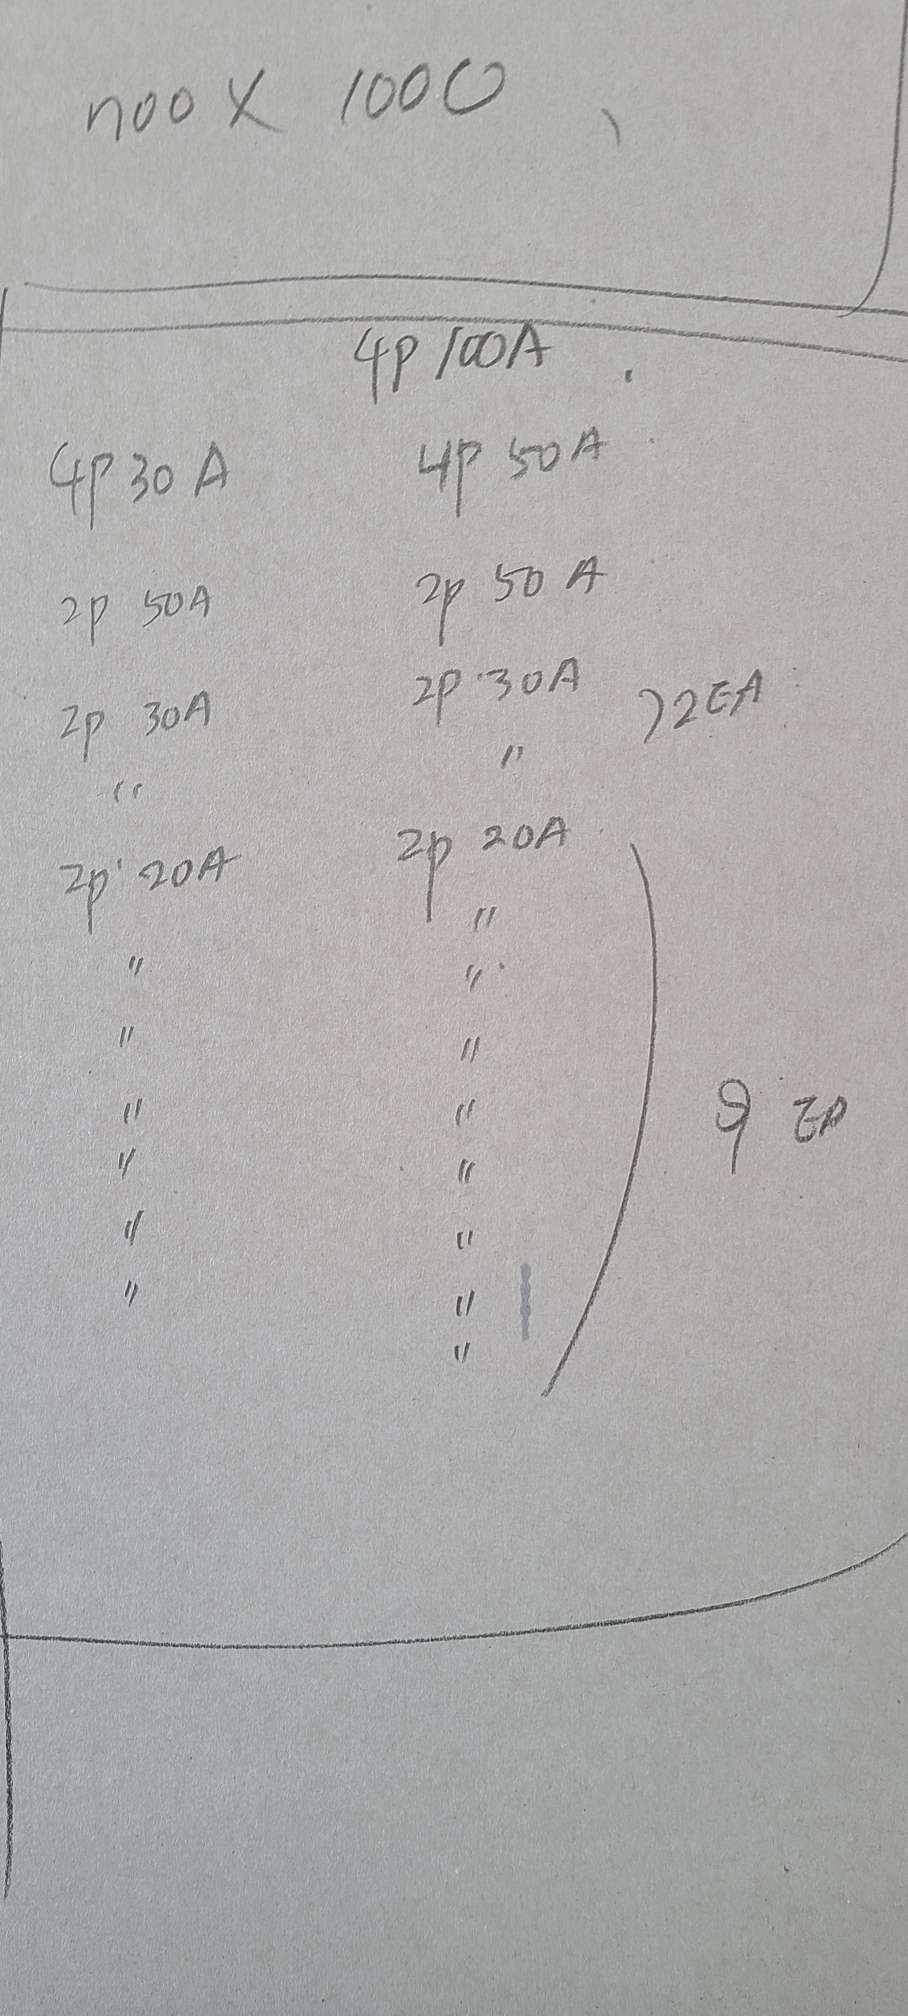 700 X 1000
4P 100A
4P 30A 4P 50A
2P 50A 2P 50A
2P 30A 2P 30A ) 2EA
" "
2P 20A 2P 20A
" "
" "
" "
" "
" " 9 EA
" "
" "
"